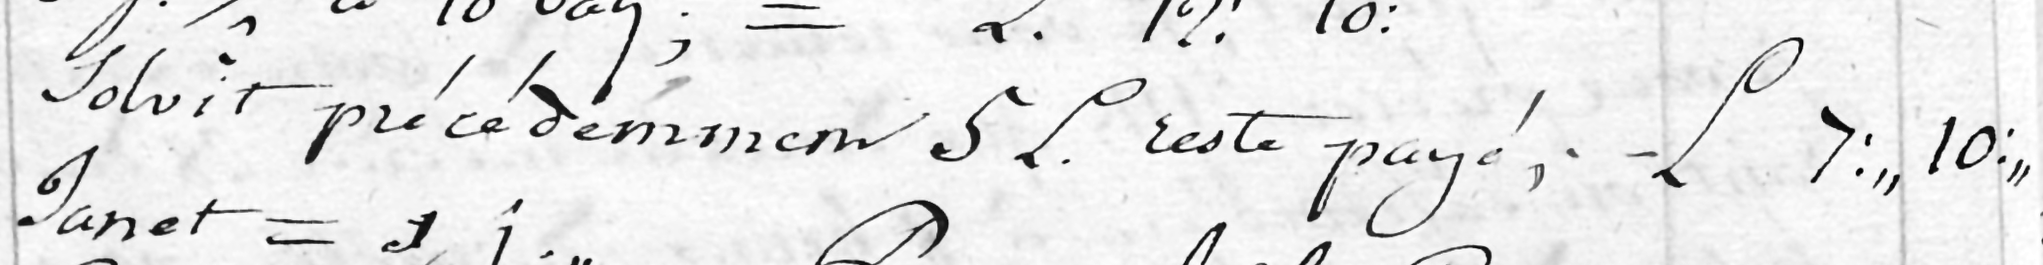 à 10 bay; = L. 12: 10:
Solvit précédemment 5 L. reste payé; - L 7:,, 10:,,
Janet =